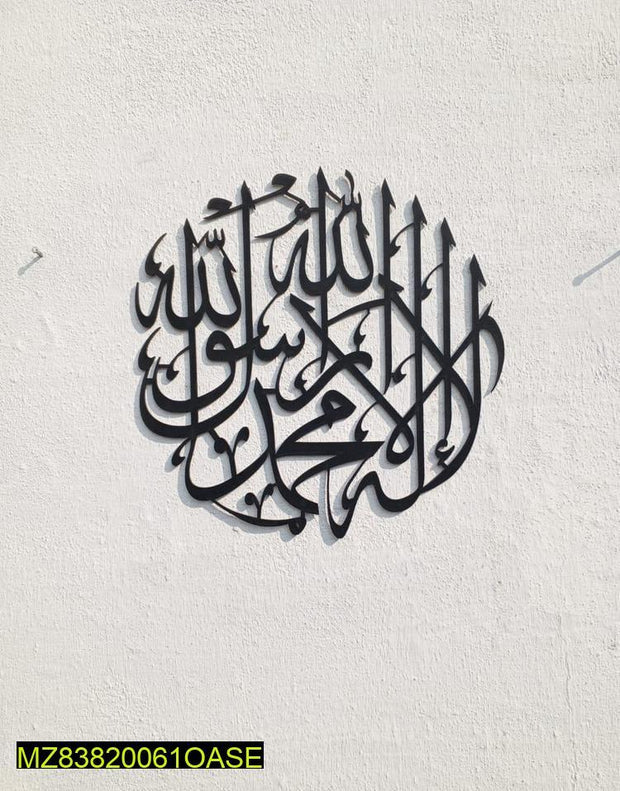 لا إله إلا الله محمد رسول الله
MZ83820061OASE